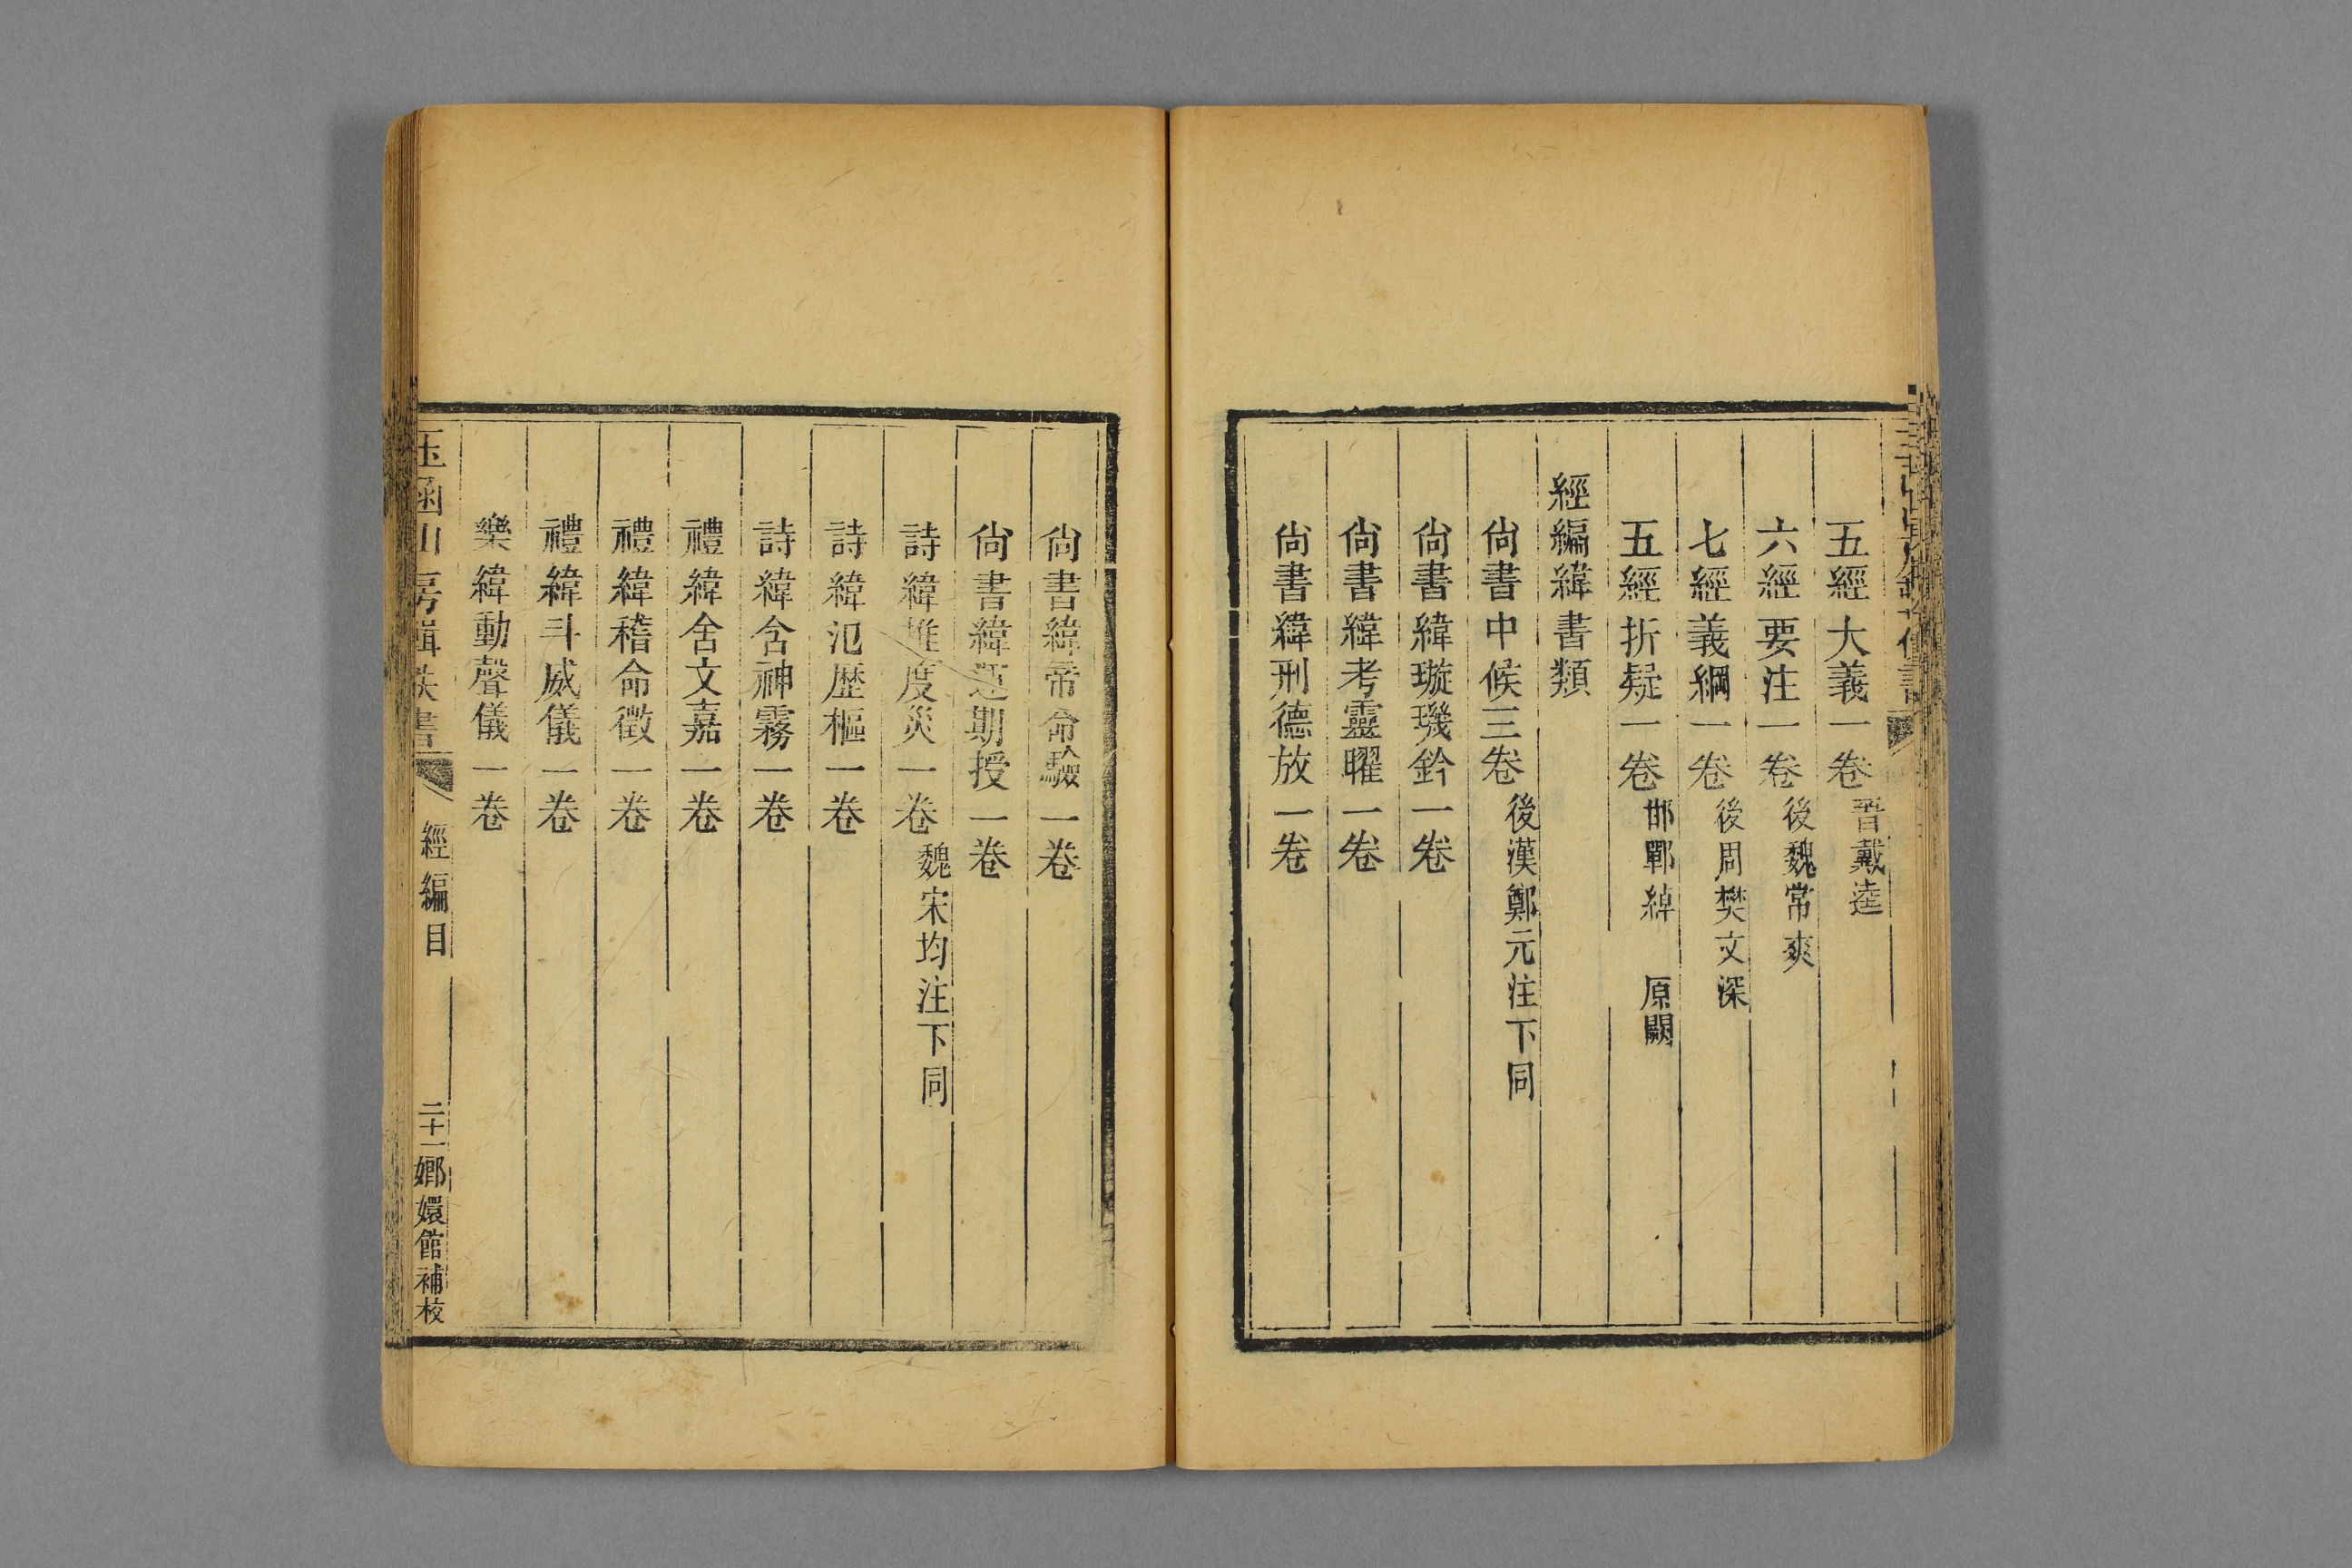 五經大義一卷 晉戴逵
六經要注一卷 後魏常爽
七經義綱一卷 後周樊文深
五經折疑一卷 邯鄲綽 原闕
經編緯書類
尙書中候三卷 後漢鄭元注下同
尙書緯璇璣鈐一卷
尙書緯考靈曜一卷
尙書緯刑德放一卷
尙書緯帝命驗一卷
尙書緯運期授一卷
詩緯推度災一卷 魏宋均注下同
詩緯氾歷樞一卷
詩緯含神霧一卷
禮緯含文嘉一卷
禮緯稽命徵一卷
禮緯斗威儀一卷
樂緯動聲儀一卷
玉函山房輯佚書 經編目 二十一 嫏嬛館補校